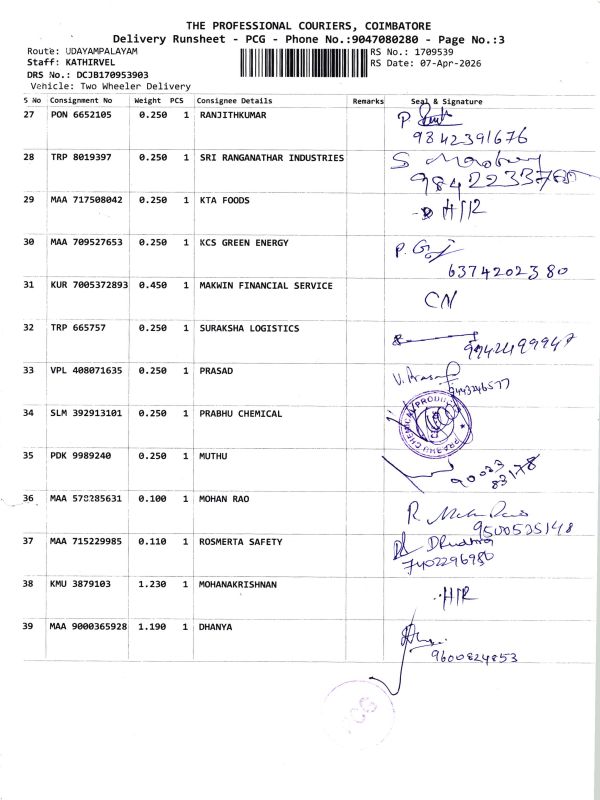 THE PROFESSIONAL COURIERS, COIMBATORE
Delivery Runsheet - PCG - Phone No.:9047080280 - Page No.:3
Route: UDAYAMPALAYAM RS No.: 1709539
Staff: KATHIRVEL RS Date: 07-Apr-2026
DRS No.: DCJB170953903
Vehicle: Two Wheeler Delivery
S No Consignment No Weight PCS Consignee Details Remarks Seal & Signature
27 PON 6652105 0.250 1 RANJITHKUMAR P.
9842391676
28 TRP 8019397 0.250 1 SRI RANGANATHAR INDUSTRIES S
29 MAA 717508042 0.250 1 KTA FOODS
30 MAA 709527653 0.250 1 KCS GREEN ENERGY P.
6374202380
31 KUR 7005372893 0.450 1 MAKWIN FINANCIAL SERVICE CN
32 TRP 665757 0.250 1 SURAKSHA LOGISTICS
33 VPL 408071635 0.250 1 PRASAD V.
34 SLM 392913101 0.250 1 PRABHU CHEMICAL
PRABHU CHEMICAL PRODUCTS
35 PDK 9989240 0.250 1 MUTHU
90033
83178
36 MAA 578285631 0.100 1 MOHAN RAO R.
9500535148
37 MAA 715229985 0.110 1 ROSMERTA SAFETY
7402296980
38 KMU 3879103 1.230 1 MOHANAKRISHNAN
39 MAA 9000365928 1.190 1 DHANYA
9600824853
PCG